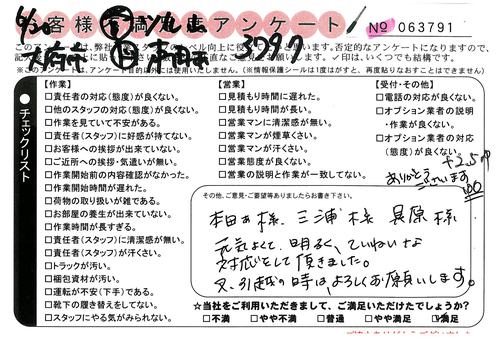 お客様不満足度アンケート
No 063791
記入
※このアンケートは、アンケート目的以外には一切使用いたしません。(※情報保護シールは1度はがすと、再度貼りなおすことはできません)
●チェックリスト
【作業】
□責任者の対応(態度)が良くない。
□他のスタッフの対応(態度)が良くない。
□作業を見ていて不安がある。
□責任者(スタッフ)に好感が持てない。
□お客様への挨拶が出来ていない。
□ご近所への挨拶・気遣いが無い。
□作業開始前の内容確認がなかった。
□作業開始時間が遅れた。
□荷物の取り扱いが雑である。
□お部屋の養生が出来ていない。
□作業時間が長すぎる。
□責任者(スタッフ)に清潔感が無い。
□責任者(スタッフ)が汗くさい。
□トラックが汚い。
□梱包資材が汚い。
□運転が不安(下手)である。
□靴下の履き替えをしてない。
□スタッフにやる気がみられない。
【営業】
□見積もり時間に遅れた。
□見積もり時間が長い。
□営業マンに清潔感が無い。
□営業マンが煙草くさい。
□営業マンが汗くさい。
□営業態度が良くない。
□営業の説明と作業が一致してない。
【受付・その他】
□電話の対応が良くない。
□オプション業者の説明
・作業が良くない。
□オプション業者の対応
(態度)が良くない。
ありがとうございます
100
その他、ご意見・ご要望等ありましたらお書き下さい。
本田あ様、三浦様 異原様
元気よくて、明るく、ていねいな
対応をして頂きました。
又、引越の時は、よろしくお願いします。
☆当社をご利用いただきまして、ご満足いただけたでしょうか?
□不満 □やや不満 □普通 □やや満足 ☑満足